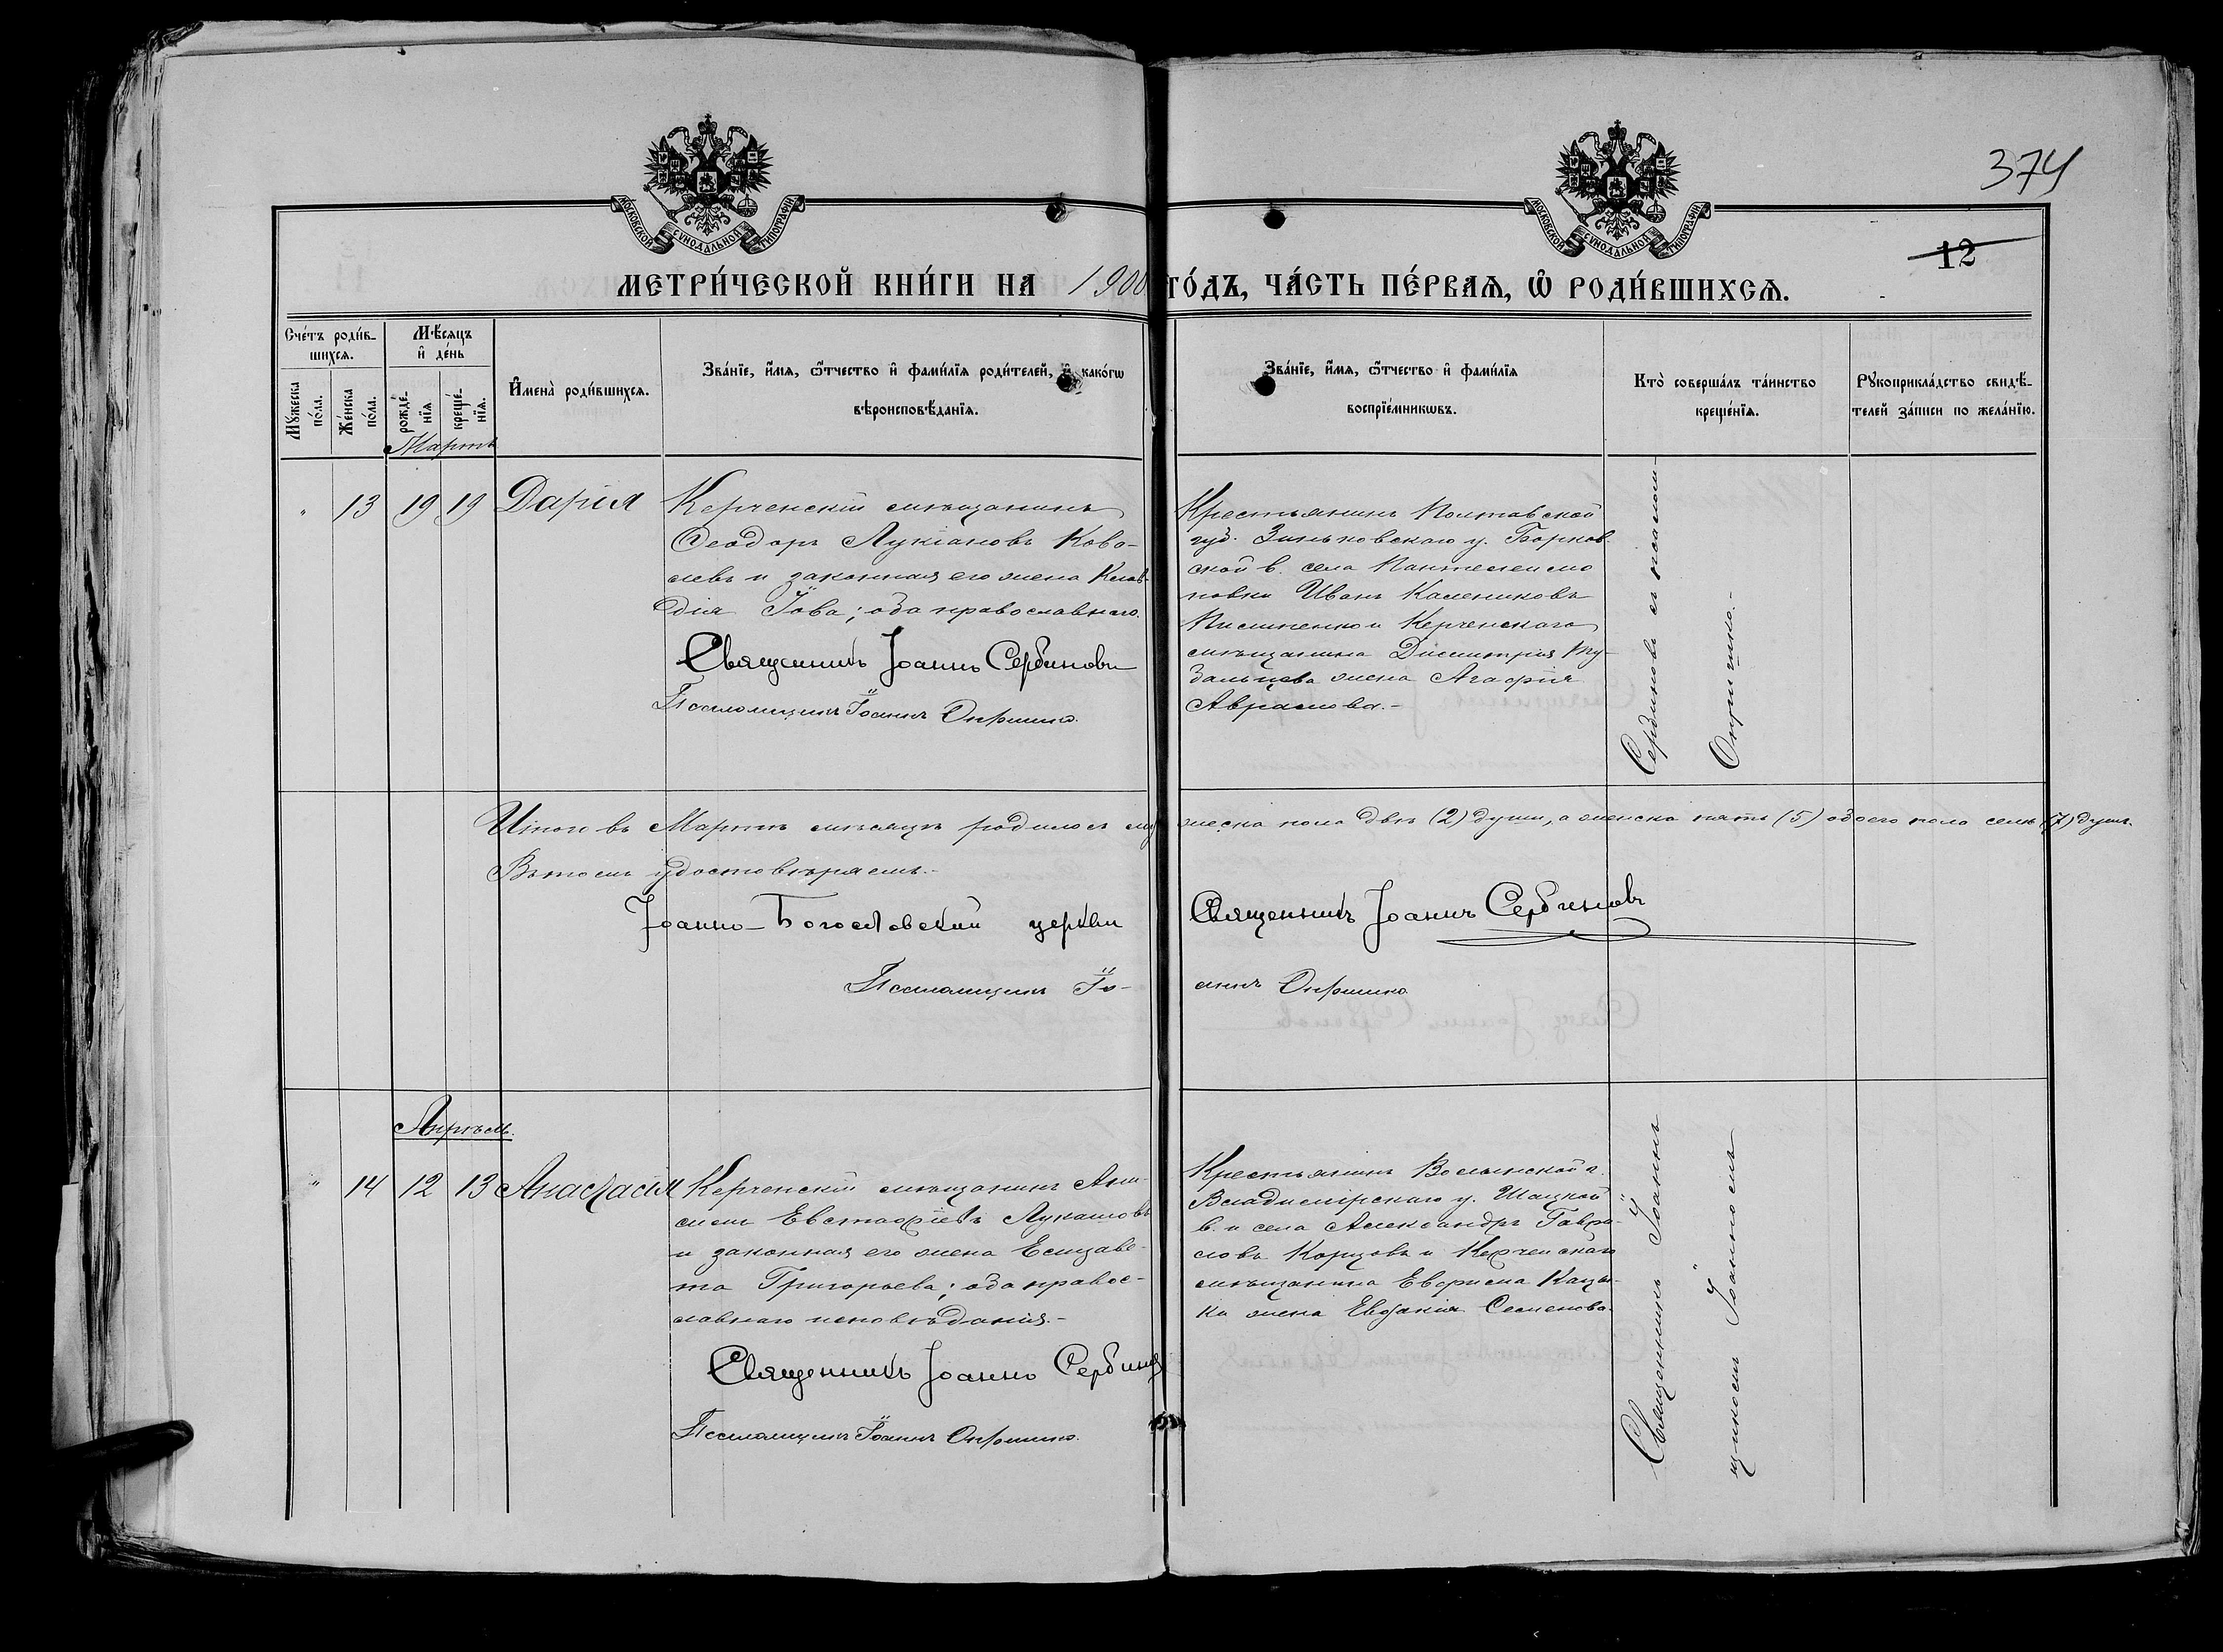 374
12
МОСКОВСКОЙ СѴНОДАЛЬНОЙ ТИПОГРАФІИ
МОСКОВСКОЙ СѴНОДАЛЬНОЙ ТИПОГРАФІИ
МЕТРИ́ЧЕСКОЙ КНИ́ГИ НА 1900 ГО́ДЪ, ЧА́СТЬ ПЕ́РВАѦ, Ѡ҆ РОДИ́ВШИХСѦ.
Сче́тъ роди́в-
шихсѧ.
Мꙋжеска по́ла.
Же́нска по́ла.
Мѣ́сѧцъ
и҆ де́нь
рожде́-
нїѧ.
креще́-
нїѧ.
И҆мена̀ роди́вшихсѧ.
Зва́нїе, и҆́мѧ, ѻ҆́тчество и҆ фами́лїѧ роди́телей, и҆ како́гѡ
вѣроисповѣ́данїѧ.
Зва́нїе, и҆́мѧ, ѻ҆́тчество и҆ фами́лїѧ
воспрїе́мникѡвъ.
Кто̀ соверша́лъ та́инство
креще́нїѧ.
Рꙋкоприкла́дство свидѣ́-
телей за́писи по жела́нїю.
Мартъ
" 13 19 19 Дарія
Керченскій мѣщанинъ
Ѳеодоръ Лукіановъ Кова-
левъ и законная его жена Клав-
дія Іова; оба православнаго.
Священникъ Іоаннъ Сербиновъ
Псаломщикъ Іоаннъ Опришко.
Крестьянинъ Полтавской
губ. Зиньковскаго у. Борков-
ской в. села Пантелеимо
новки Иванъ Калениковъ
и Керченскаго
мѣщанина Димитрія
жена Агафія
Авраамова.-
Сербиновъ съ псалом-
Опришко.-
Итого въ Мартѣ мѣсяцѣ родилось му жеска пола двѣ (2) души, а женска пять (5) обоего пола семь (7) душъ.
Въ томъ удостовѣряемъ.-
Іоанно-Богословской церкви Священникъ Іоаннъ Сербиновъ
Псаломщикъ Іо- аннъ Опришко
Апрѣль.
" 14 12 13 Анастасія
Керченскій мѣщанинъ Ани-
симъ Евстафіевъ Лукашовъ
и законная его жена Елизаве-
та Григорьева; оба правос-
лавнаго исповѣданія.-
Священникъ Іоаннъ Сербиновъ
Псаломщикъ Іоаннъ Опришко.
Крестьянинъ Волынской г.
Владимірскаго у. Шацкой
в. и села Александръ Гаври-
ловъ и Керченскаго
мѣщанина
жена Евдокія Семенова.
Священникъ Іоаннъ
щикомъ Іоанномъ